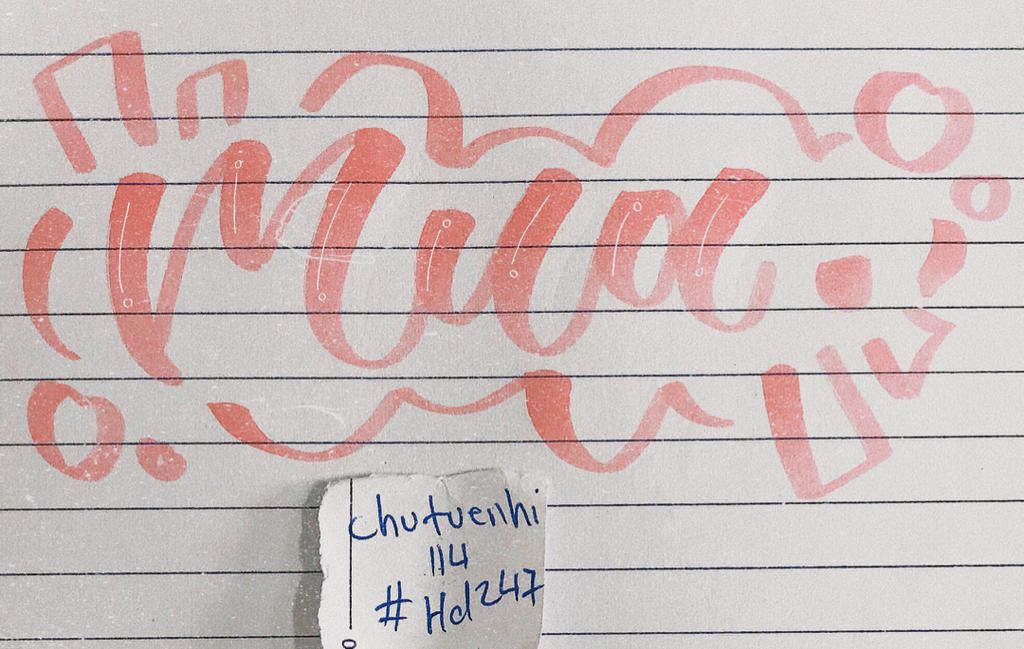 Mua
chutuenhi
114
#Hd247